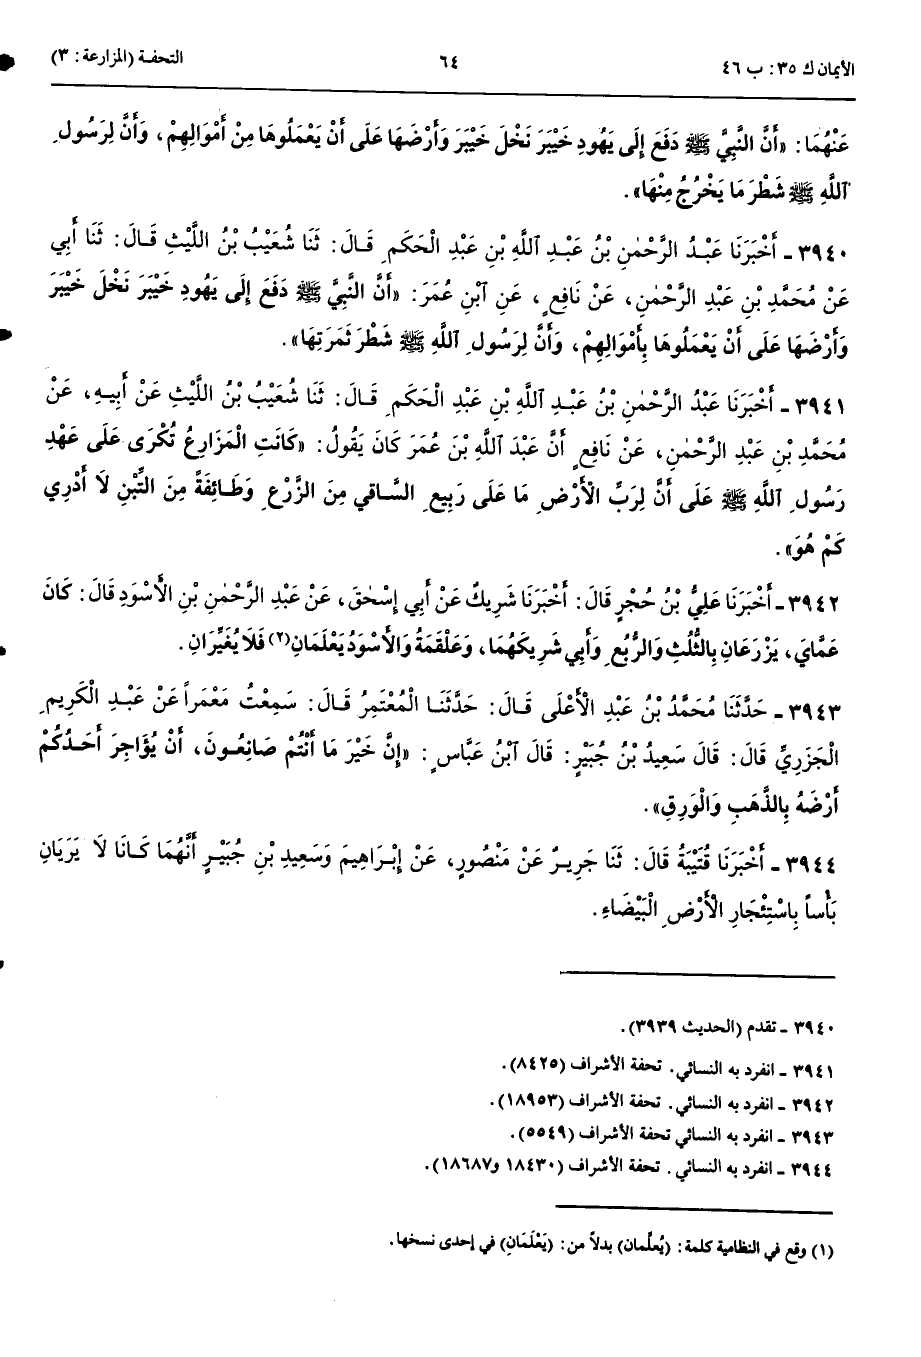 الأيمان ك ٣٥: ب ٤٦
٦٤
التحفة (المزارعة: ٣)
عَنْهُمَا: «أَنَّ النَّبِيَّ ﷺ دَفَعَ إِلَى يَهُودِ خَيْبَرَ نَخْلَ خَيْبَرَ وَأَرْضَهَا عَلَى أَنْ يَعْمَلُوهَا مِنْ أَمْوَالِهِمْ، وَأَنَّ لِرَسُولِ
ٱللَّهِ ﷺ شَطْرَ مَا يَخْرُجُ مِنْهَا».
٣٩٤٠ - أَخْبَرَنَا عَبْدُ الرَّحْمٰنِ بْنُ عَبْدِ ٱللَّهِ بْنِ عَبْدِ الْحَكَمِ قَالَ: ثَنَا شُعَيْبُ بْنُ اللَّيْثِ قَالَ: ثَنَا أَبِي
عَنْ مُحَمَّدِ بْنِ عَبْدِ الرَّحْمٰنِ، عَنْ نَافِعٍ، عَنِ ٱبْنِ عُمَرَ: «أَنَّ النَّبِيَّ ﷺ دَفَعَ إِلَى يَهُودِ خَيْبَرَ نَخْلَ خَيْبَرَ
وَأَرْضَهَا عَلَى أَنْ يَعْمَلُوهَا بِأَمْوَالِهِمْ، وَأَنَّ لِرَسُولِ ٱللَّهِ ﷺ شَطْرَ ثَمَرَتِهَا».
٣٩٤١ - أَخْبَرَنَا عَبْدُ الرَّحْمٰنِ بْنُ عَبْدِ ٱللَّهِ بْنِ عَبْدِ الْحَكَمِ قَالَ: ثَنَا شُعَيْبُ بْنُ اللَّيْثِ عَنْ أَبِيهِ، عَنْ
مُحَمَّدِ بْنِ عَبْدِ الرَّحْمٰنِ، عَنْ نَافِعٍ أَنَّ عَبْدَ ٱللَّهِ بْنَ عُمَرَ كَانَ يَقُولُ: «كَانَتِ الْمَزَارِعُ تُكْرَى عَلَى عَهْدِ
رَسُولِ ٱللَّهِ ﷺ عَلَى أَنَّ لِرَبِّ الْأَرْضِ مَا عَلَى رَبِيعِ السَّاقِي مِنَ الزَّرْعِ وَطَائِفَةً مِنَ التِّبْنِ لَا أَدْرِي
كَمْ هُوَ».
٣٩٤٢ - أَخْبَرَنَا عَلِيُّ بْنُ حُجْرٍ قَالَ: أَخْبَرَنَا شَرِيكٌ عَنْ أَبِي إِسْحٰقَ، عَنْ عَبْدِ الرَّحْمٰنِ بْنِ الْأَسْوَدِ قَالَ: كَانَ
عَمَّايَ، يَزْرَعَانِ بِالثُّلُثِ وَالرُّبُعِ وَأَبِي شَرِيكَهُمَا، وَعَلْقَمَةُ وَالْأَسْوَدُ يَعْلَمَانِ(٢) فَلَا يُغَيِّرَانِ.
٣٩٤٣ - حَدَّثَنَا مُحَمَّدُ بْنُ عَبْدِ الْأَعْلَى قَالَ: حَدَّثَنَا الْمُعْتَمِرُ قَالَ: سَمِعْتُ مَعْمَراً عَنْ عَبْدِ الْكَرِيمِ
الْجَزَرِيِّ قَالَ: قَالَ سَعِيدُ بْنُ جُبَيْرٍ: قَالَ ٱبْنُ عَبَّاسٍ: «إِنَّ خَيْرَ مَا أَنْتُمْ صَانِعُونَ، أَنْ يُؤَاجِرَ أَحَدُكُمْ
أَرْضَهُ بِالذَّهَبِ وَالْوَرِقِ».
٣٩٤٤ - أَخْبَرَنَا قُتَيْبَةُ قَالَ: ثَنَا جَرِيرٌ عَنْ مَنْصُورٍ، عَنْ إِبْرَاهِيمَ وَسَعِيدِ بْنِ جُبَيْرٍ أَنَّهُمَا كَانَا لَا يَرَيَانِ
بَأْساً بِاسْتِئْجَارِ الْأَرْضِ الْبَيْضَاءِ.
٣٩٤٠ - تقدم (الحديث ٣٩٣٩).
٣٩٤١ - انفرد به النسائي. تحفة الأشراف (٨٤٢٥).
٣٩٤٢ - انفرد به النسائي. تحفة الأشراف (١٨٩٥٣).
٣٩٤٣ - انفرد به النسائي تحفة الأشراف (٥٥٤٩).
٣٩٤٤ - انفرد به النسائي. تحفة الأشراف (١٨٤٣٠ و١٨٦٨٧).
(١) وقع في النظامية كلمة: (يُعلَّمان) بدلاً من: (يَعْلَمَانِ) في إحدى نسخها.